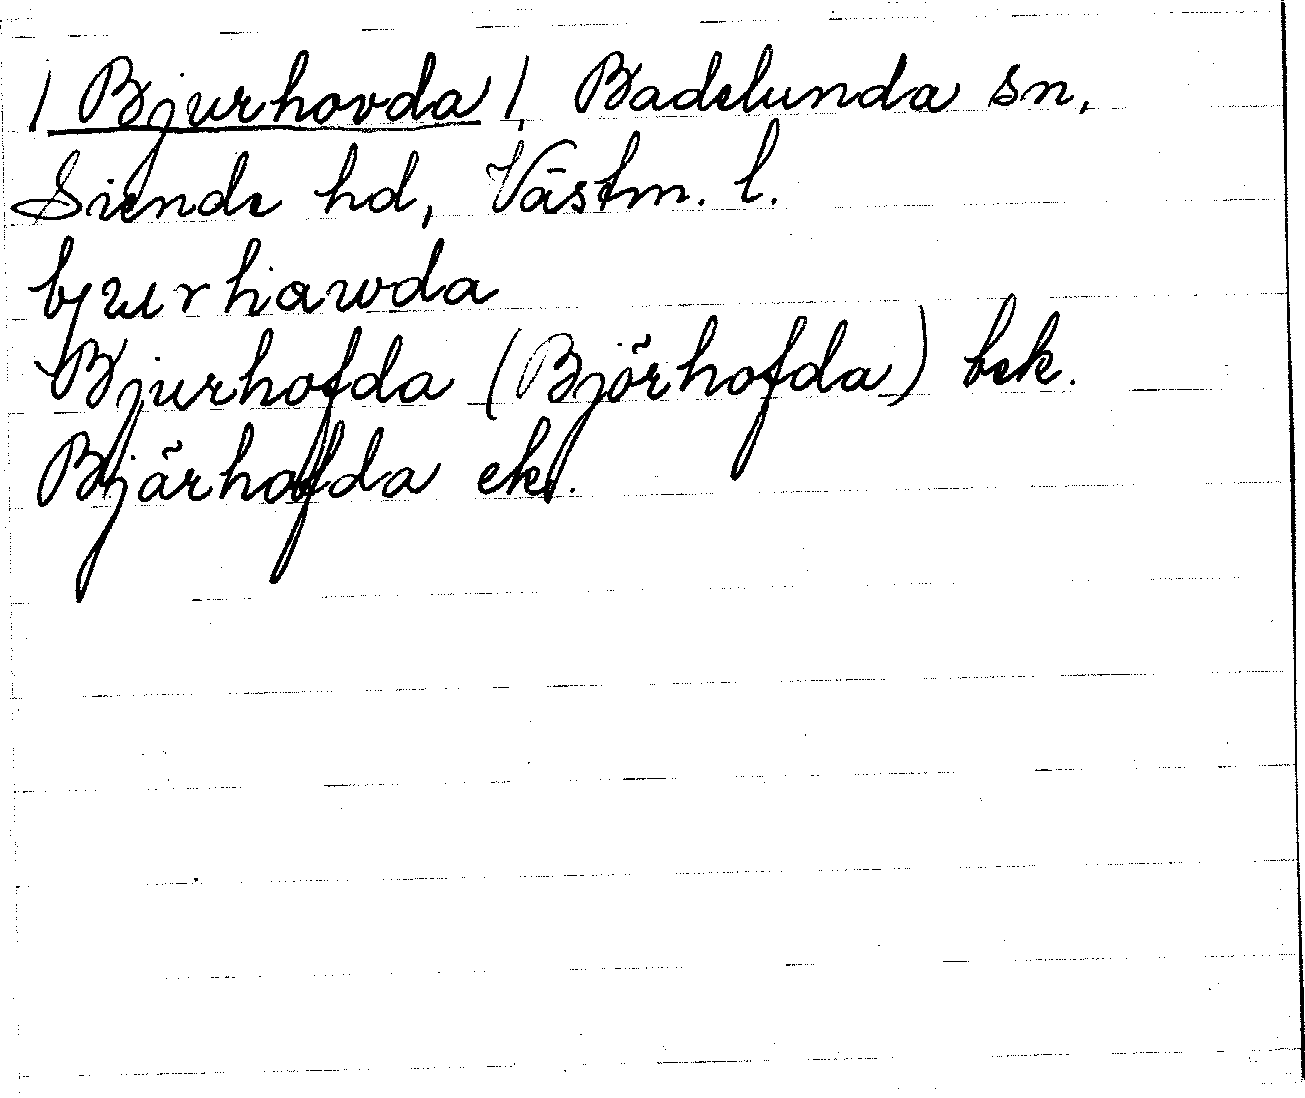 /Bjurhovda/, Badelunda sn,
Siende hd, Västm. l.
bjurhawda
Bjurhofda (Björhofda) bek.
Bjärhofda ek.